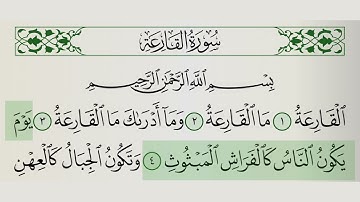 سُورَةُ الْقَارِعَة
بِسْمِ اللَّهِ الرَّحْمَٰنِ الرَّحِيمِ
الْقَارِعَةُ ١ مَا الْقَارِعَةُ ٢ وَمَا أَدْرَىٰكَ مَا الْقَارِعَةُ ٣ يَوْمَ
يَكُونُ النَّاسُ كَالْفَرَاشِ الْمَبْثُوثِ ٤ وَتَكُونُ الْجِبَالُ كَالْعِهْنِ